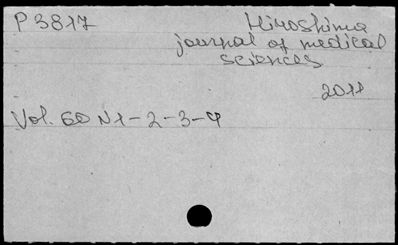 P 3817 Hiroshima
journal of medical
sciences
2011
Vol. 60 N1-2-3-4